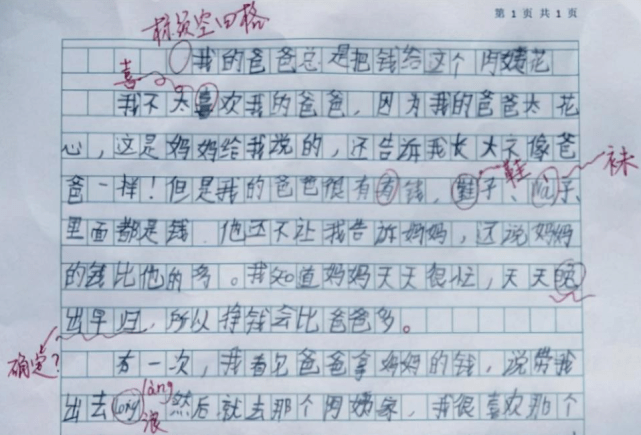 第 1 页 共 1 页
标题空四格
我的爸爸总是把钱给这个阿姨花
喜
我不太喜欢我的爸爸，因为我的爸爸太花
心，这是妈妈给我说的，还告诉我长大不像爸
爸一样！但是我的爸爸很有有钱，鞋子、子、
鞋
袜
里面都是钱．他还不让我告诉妈妈，还说妈妈
的钱比他的多。我知道妈妈天天很忙，天天晚
出早归，所以挣钱会比爸爸多。
确定？
有一次，我看见爸爸拿妈妈的钱，说带我
出去long然后就去那个阿姨家，我很喜欢那个
làng
浪